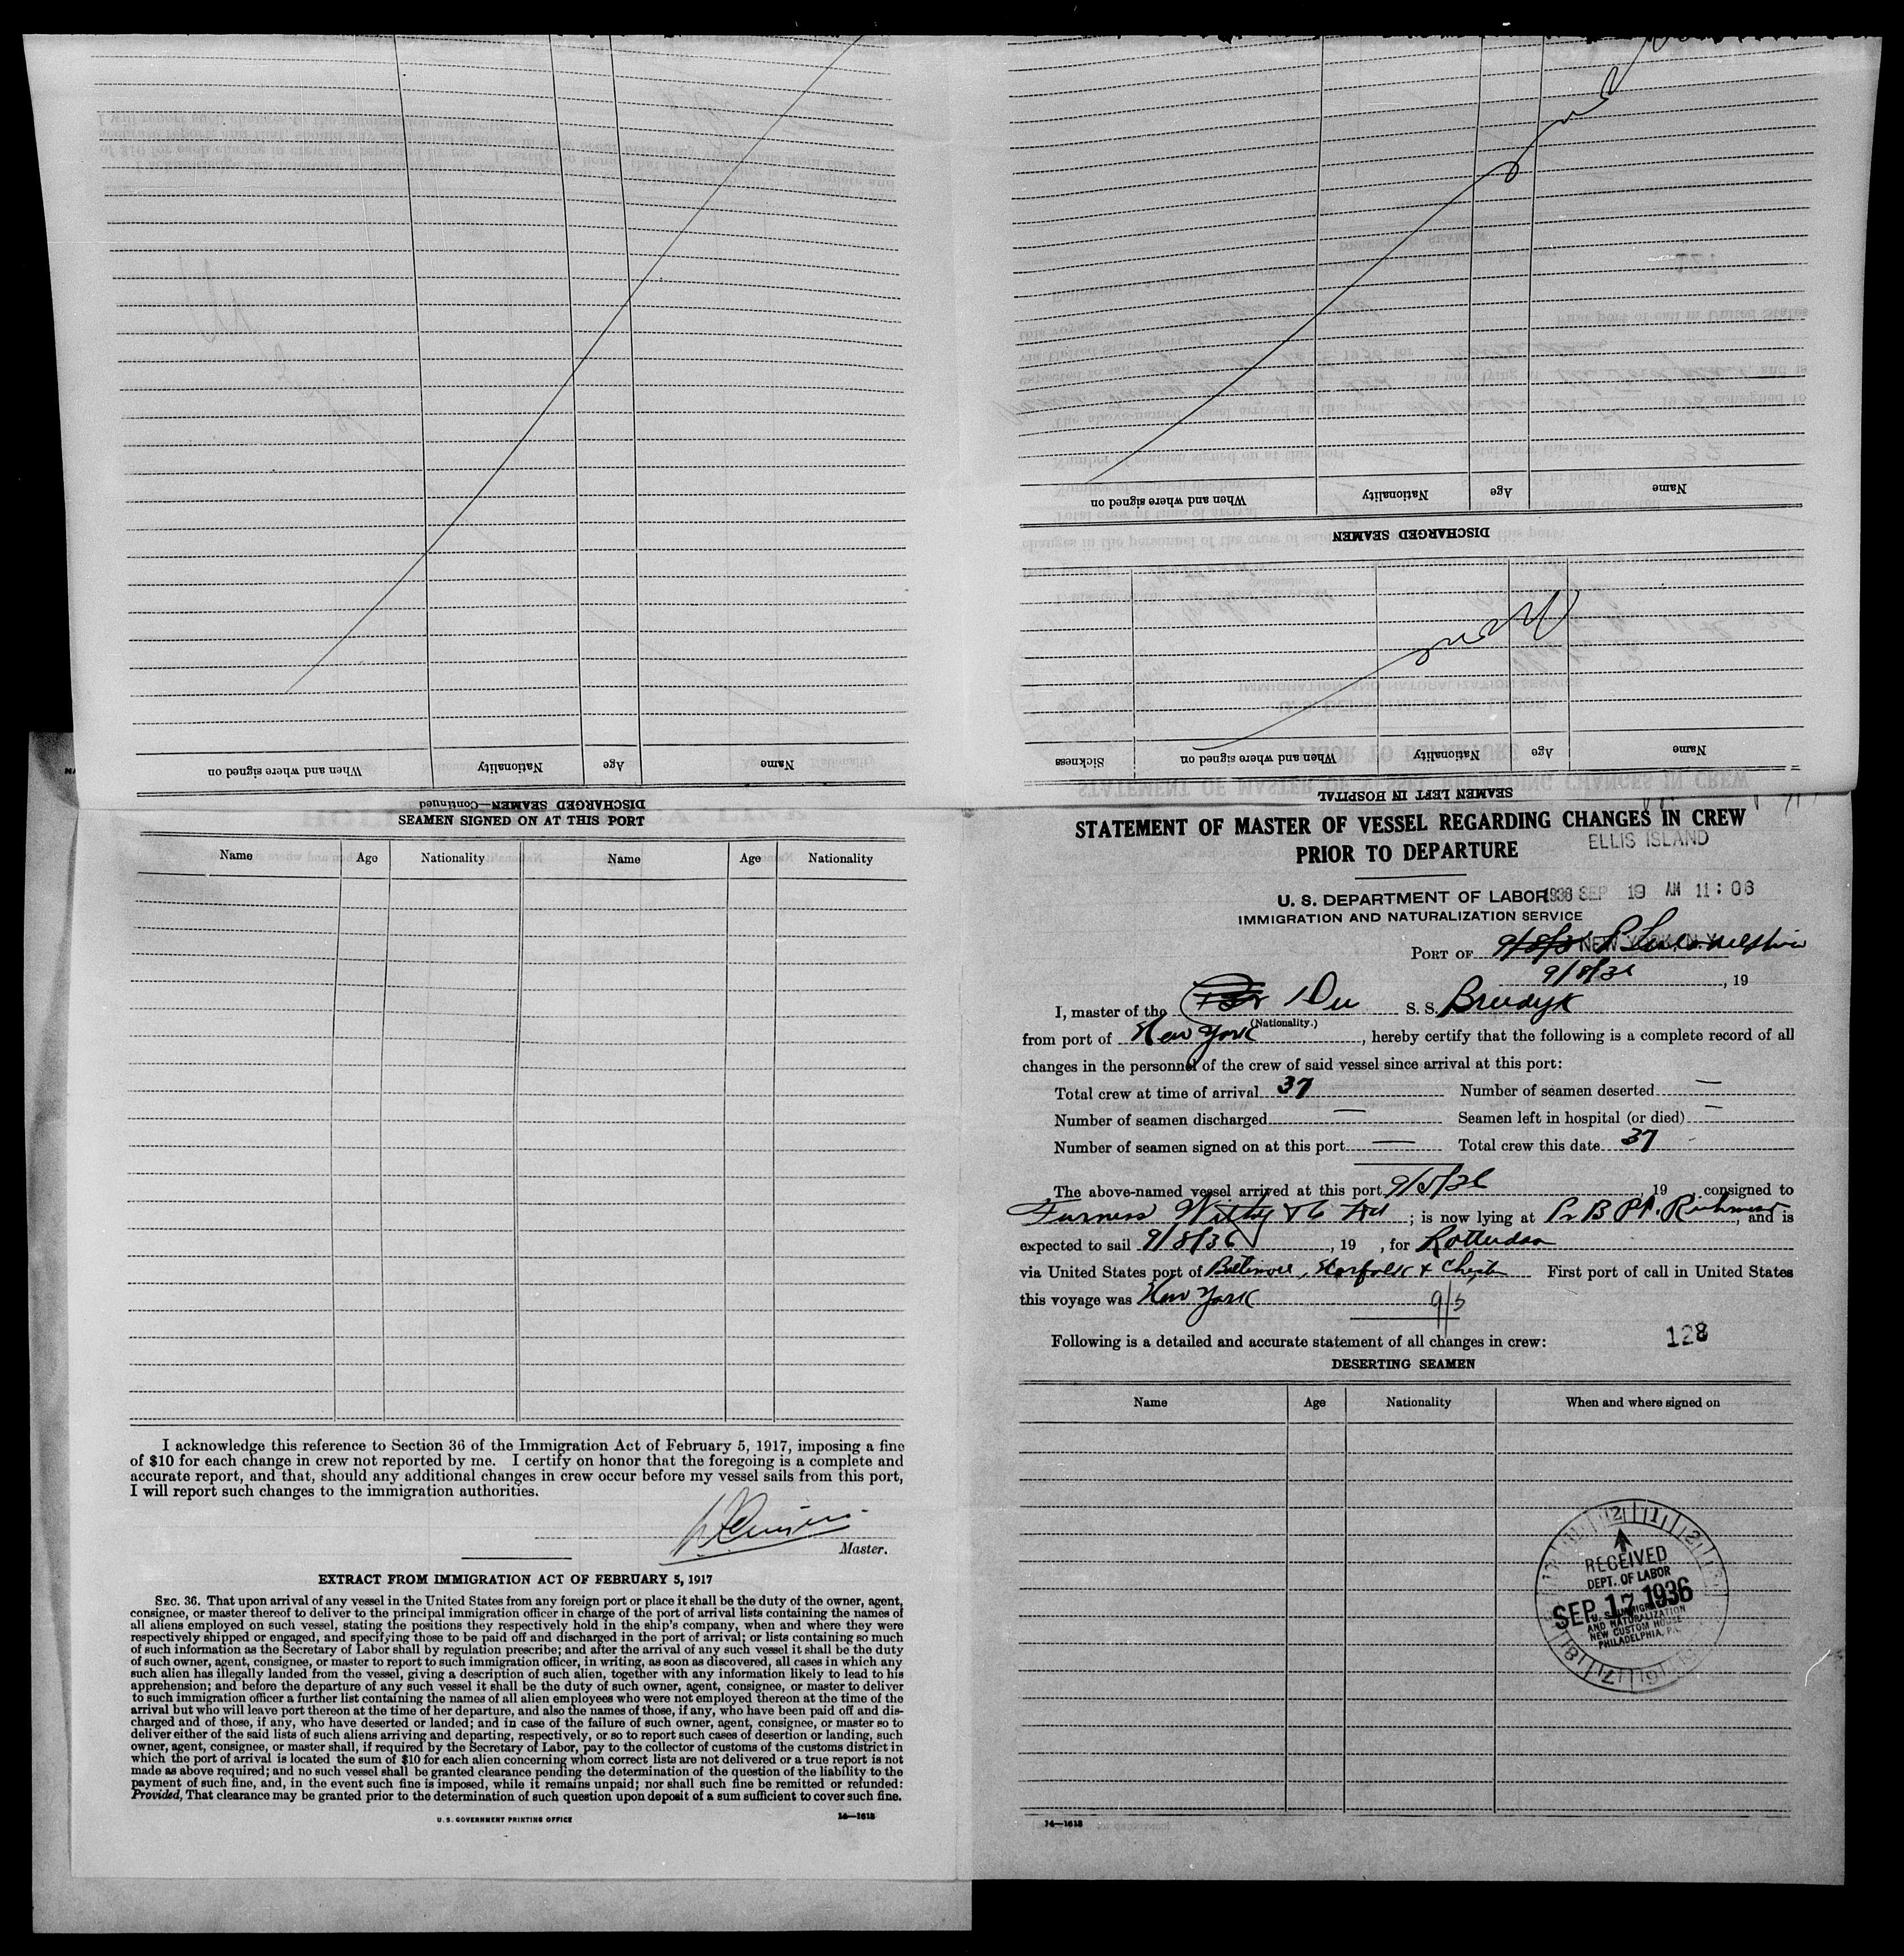 When and where signed on Nationality Age Name
DISCHARGED SEAMEN
None
Sickness When and where signed on Nationality Age Name
SEAMEN LEFT IN HOSPITAL
None
When and where signed on Nationality Age Name
DISCHARGED SEAMEN—Continued
SEAMEN SIGNED ON AT THIS PORT
Name Age Nationality Name Age Nationality
I acknowledge this reference to Section 36 of the Immigration Act of February 5, 1917, imposing a fine
of $10 for each change in crew not reported by me. I certify on honor that the foregoing is a complete and
accurate report, and that, should any additional changes in crew occur before my vessel sails from this port,
I will report such changes to the immigration authorities.
Master.
EXTRACT FROM IMMIGRATION ACT OF FEBRUARY 5, 1917
SEC. 36. That upon arrival of any vessel in the United States from any foreign port or place it shall be the duty of the owner, agent,
consignee, or master thereof to deliver to the principal immigration officer in charge of the port of arrival lists containing the names of
all aliens employed on such vessel, stating the positions they respectively hold in the ship's company, when and where they were
respectively shipped or engaged, and specifying those to be paid off and discharged in the port of arrival; or lists containing so much
of such information as the Secretary of Labor shall by regulation prescribe; and after the arrival of any such vessel it shall be the duty
of such owner, agent, consignee, or master to report to such immigration officer, in writing, as soon as discovered, all cases in which any
such alien has illegally landed from the vessel, giving a description of such alien, together with any information likely to lead to his
apprehension; and before the departure of any such vessel it shall be the duty of such owner, agent, consignee, or master to deliver
to such immigration officer a further list containing the names of all alien employees who were not employed thereon at the time of the
arrival but who will leave port thereon at the time of her departure, and also the names of those, if any, who have been paid off and dis-
charged and of those, if any, who have deserted or landed; and in case of the failure of such owner, agent, consignee, or master so to
deliver either of the said lists of such aliens arriving and departing, respectively, or so to report such cases of desertion or landing, such
owner, agent, consignee, or master shall, if required by the Secretary of Labor, pay to the collector of customs of the customs district in
which the port of arrival is located the sum of $10 for each alien concerning whom correct lists are not delivered or a true report is not
made as above required; and no such vessel shall be granted clearance pending the determination of the question of the liability to the
payment of such fine, and, in the event such fine is imposed, while it remains unpaid; nor shall such fine be remitted or refunded:
Provided, That clearance may be granted prior to the determination of such question upon deposit of a sum sufficient to cover such fine.
U. S. GOVERNMENT PRINTING OFFICE 14—1618
STATEMENT OF MASTER OF VESSEL REGARDING CHANGES IN CREW
PRIOR TO DEPARTURE
ELLIS ISLAND
U. S. DEPARTMENT OF LABOR
1936 SEP 19 AM 11:06
IMMIGRATION AND NATURALIZATION SERVICE
NEW YORK, N.Y.
PORT OF 9/8/36 Philadelphia
9/8/36, 19
I, master of the Du S. S. Breedyk
(Nationality.)
from port of New York, hereby certify that the following is a complete record of all
changes in the personnel of the crew of said vessel since arrival at this port:
Total crew at time of arrival 37 Number of seamen deserted —
Number of seamen discharged — Seamen left in hospital (or died) —
Number of seamen signed on at this port — Total crew this date 37
The above-named vessel arrived at this port 9/5/36, 19 , consigned to
Furness Withy & Co Ltd; is now lying at Pr B Pt. Richmond, and is
expected to sail 9/8/36, 19 , for Rotterdam
via United States port of Baltimore, Norfolk & Chester First port of call in United States
this voyage was New York 9/5
Following is a detailed and accurate statement of all changes in crew: 128
DESERTING SEAMEN
Name Age Nationality When and where signed on
RECEIVED
DEPT. OF LABOR
SEP 17 1936
U. S. IMMIGRATION
AND NATURALIZATION
NEW CUSTOM HOUSE
PHILADELPHIA, PA.
14—1618